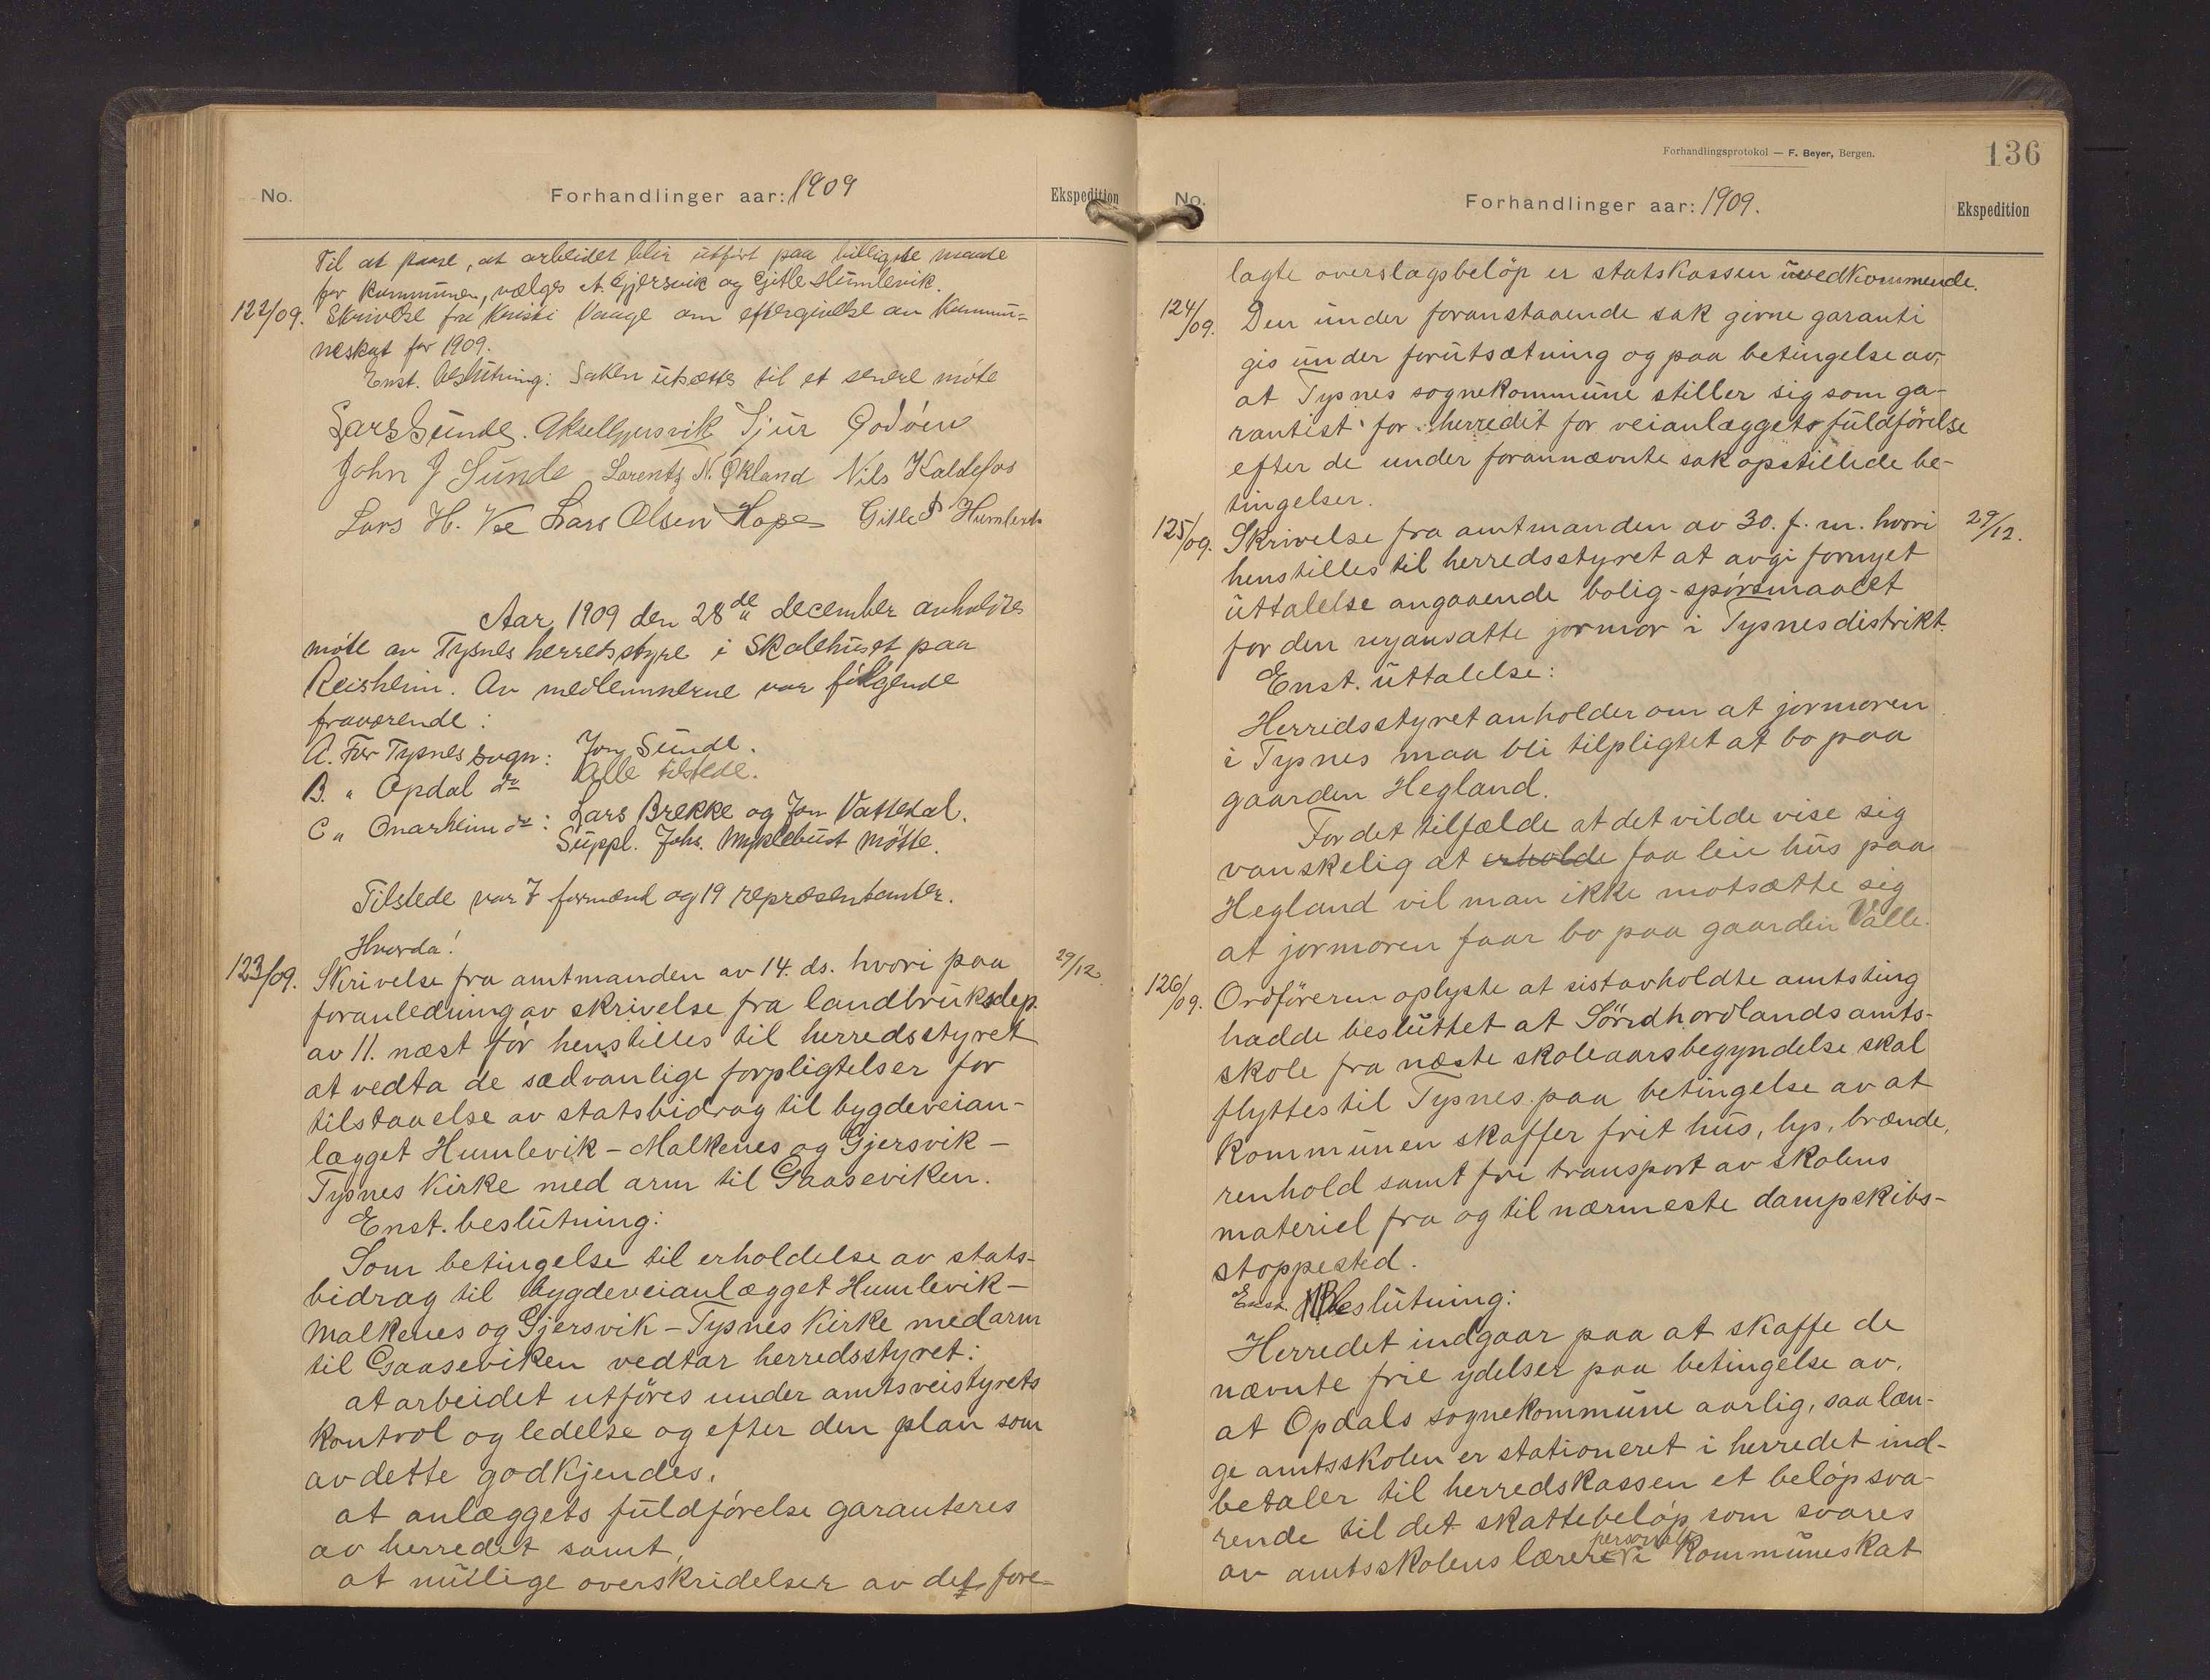 No.
Forhandlinger aar: 1909
Ekspedition
Til at paase, at arbeidet blir utført paa billigste maate
for kommunen, vælges A. Gjersvik og Gitle Humlevik.
122/09. Skrivelse fra Kristi Vaage om eftergivelse av kommu-
neskat for 1909.
Enst. beslutning: Saken utsættes til et senere møte
Lars Sunde. Aksel Gjersvik Sjur Godøen
John J Sunde Lorentz N. Økland Nils Kaldefos
Lars H. Vee Lars Olsen Hope Gitle Humlevik
Aar 1909 den 28de december anholdtes
møte av Tysnes herredsstyre i Skolehuset paa
Reisheim. Av medlemmerne var følgende
fraværende:
A. For Tysnes sogn: Jon Sunde.
B. " Opdal do Alle tilstede.
C " Onarheim do: Lars Brekke og Jon Vattedal.
Suppl. Johs. Myklebust møtte.
Tilstede var 7 formænd og 19 repræsentanter.
Hvorda!
123/09. Skrivelse fra amtmanden av 14. ds. hvori paa 29/12.
foranledning av skrivelse fra landbruksdep.
av 11. næst før henstilles til herredsstyret
at vedta de sædvanlige forpligtelser for
tilstaaelse av statsbidrag til bygdeveian-
lægget Humlevik – Malkenes og Gjersvik –
Tysnes Kirke med arm til Gaaseviken.
Enst. beslutning:
Som betingelse til erholdelse av stats-
bidrag til bygdeveianlægget Humlevik –
Malkenes og Gjersvik – Tysnes Kirke med arm
til Gaaseviken vedtar herredsstyret:
at arbeidet utføres under amtsveistyrets
kontrol og ledelse og efter den plan som
av dette godkjendes.
at anlæggets fuldførelse garanteres
av herredet samt,
at mulige overskridelser av det fore-
Forhandlingsprotokol — F. Beyer, Bergen.
136
No.
Forhandlinger aar: 1909.
Ekspedition
lagte overslagsbeløp er statskassen uvedkommende.
124/09. Den under foranstaaende sak givne garanti
gis under forutsætning og paa betingelse av,
at Tysnes sognekommune stiller sig som ga-
rantist for herredet for veianlæggets fuldførelse
efter de under forannævnte sak opstillede be-
tingelser.
125/09. Skrivelse fra amtmanden av 30. f. m. hvori 29/12.
henstilles til herredsstyret at avgi fornyet
uttalelse angaaende bolig-spørsmaalet
for den nyansatte jormor i Tysnes distrikt.
Enst. uttalelse:
Herredsstyret anholder om at jormoren
i Tysnes maa bli tilpligtet at bo paa
gaarden Hegland.
For det tilfælde at det vilde vise sig
vanskelig at erholde faa leie hus paa
Hegland vil man ikke motsætte sig
at jormoren faar bo paa gaarden Valle.
126/09. Ordføreren oplyste at sistavholdte amtsting
hadde besluttet at Söndhordlands amts-
skole fra næste skoleaarsbegyndelse skal
flyttes til Tysnes paa betingelse av at
kommunen skaffer frit hus, lys, brænde,
renhold samt fri transport av skolens
materiel fra og til nærmeste dampskibs-
stoppested.
Enst. Beslutning:
Herredet indgaar paa at skaffe de
nævnte frie ydelser paa betingelse av,
at Opdals sognekommune aarlig, saa læn-
ge amtsskolen er stationeret i herredet ind-
betaler til herredskassen et beløp sva-
rende til det skattebeløp som svares
av amtsskolens lærerpersonale i kommuneskat